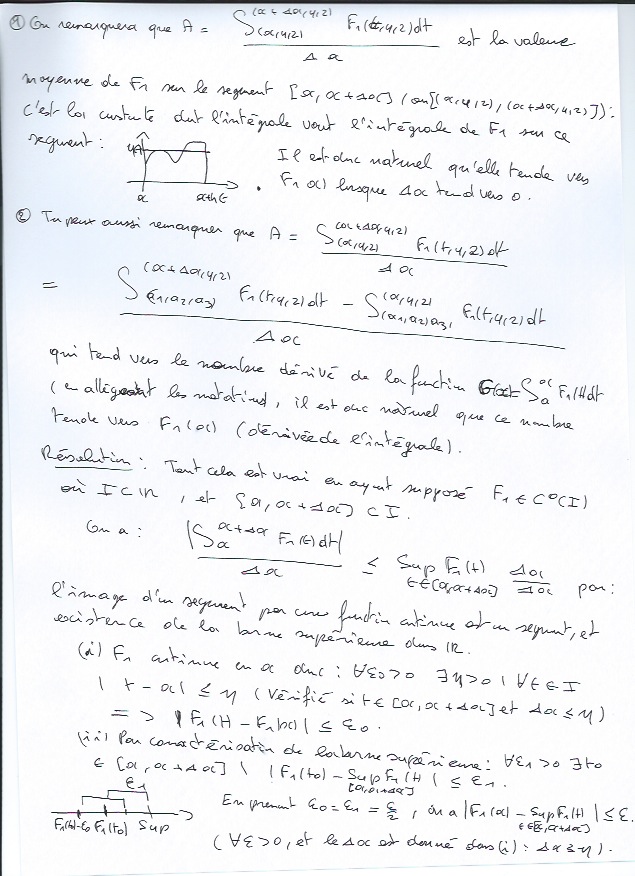 ① On remarquera que A = ∫_(x,y,z)^(x+Δx,y,z) F₁(t,y,z)dt / Δx est la valeur
moyenne de F₁ sur le segment [x, x+Δx] (ou [(x,y,z), (x+Δx,y,z)]) :
c'est la constante dont l'intégrale vaut l'intégrale de F₁ sur ce
segment : Il est donc naturel qu'elle tende vers
F₁(x) lorsque Δx tend vers 0.
x x+h t
② Tu peux aussi remarquer que A = ∫_(x,y,z)^(x+Δx,y,z) F₁(t,y,z)dt / Δx
= ∫_(a₁,a₂,a₃)^(x+Δx,y,z) F₁(t,y,z)dt − ∫_(a₁,a₂,a₃)^(x,y,z) F₁(t,y,z)dt / Δx
qui tend vers le nombre dérivé de la fonction G(x)=∫_a^x F₁(t)dt
(en allégeant les notations), il est donc naturel que ce nombre
tende vers F₁(x) (dérivée de l'intégrale).
Résolution : Tout cela est vrai en ayant supposé F₁ ∈ C⁰(I)
où I ⊂ ℝ, et [x, x+Δx] ⊂ I.
On a : |∫_x^(x+Δx) F₁(t)dt| / Δx ≤ Sup_(t∈[x,x+Δx]) F₁(t) Δx/Δx par :
l'image d'un segment par une fonction continue est un segment, et
existence de la borne supérieure dans ℝ.
(i) F₁ continue en x donc : ∀ε₀>0 ∃η>0 | ∀t∈I
|t−x| ≤ η (Vérifié si t∈[x,x+Δx] et Δx≤η)
=> |F₁(t)−F₁(x)| ≤ ε₀.
(ii) Par caractérisation de la borne supérieure : ∀ε₁>0 ∃t₀
∈ [x,x+Δx] \ |F₁(t₀) − Sup_[x,x+Δx] F₁(t)| ≤ ε₁.
ε₁
F₁(t₀)-ε₀ F₁(t₀) Sup
En prenant ε₀=ε₁=ε/2, on a |F₁(x) − Sup_(t∈[x,x+Δx]) F₁(t)| ≤ ε.
(∀ε>0, et le Δx est donné dans (i) : Δx≤η).